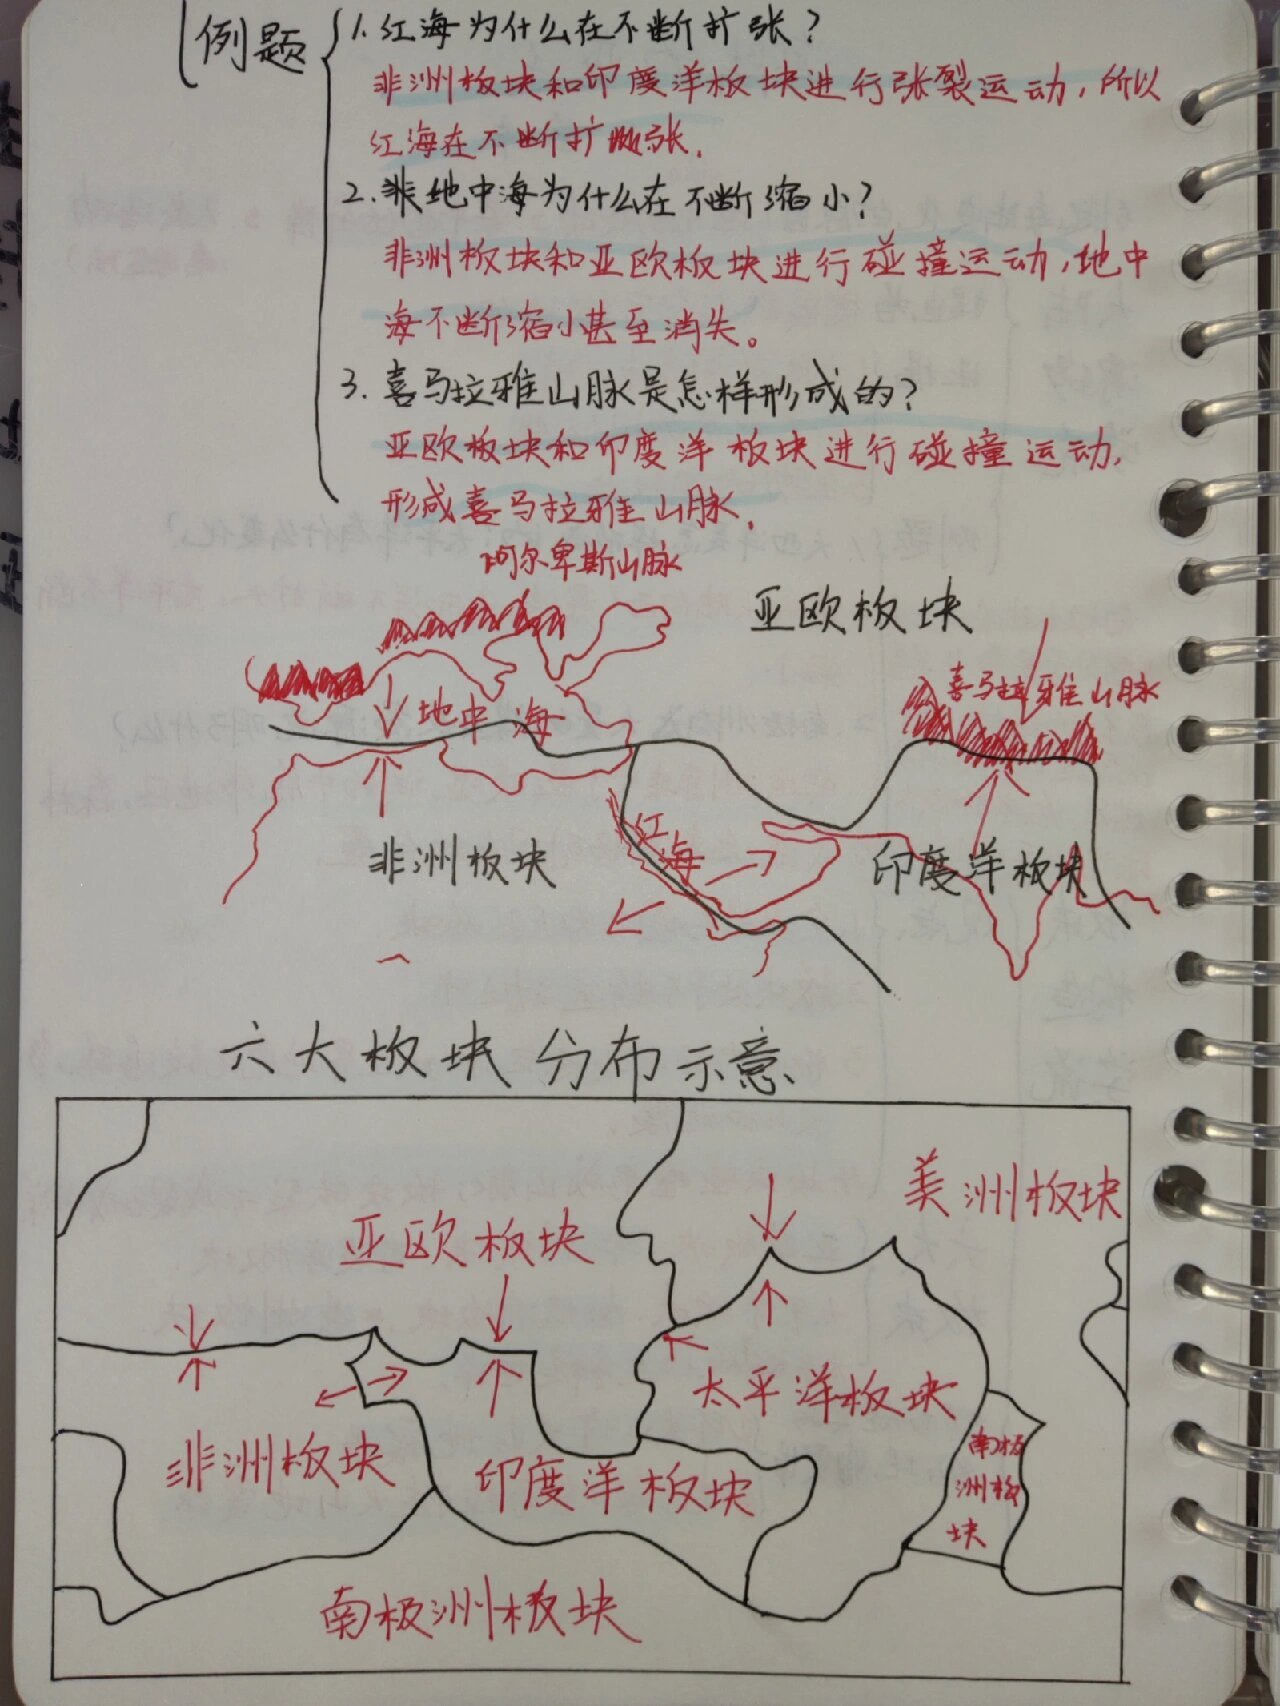 例题
1. 红海为什么在不断扩张?
非洲板块和印度洋板块进行张裂运动,所以
红海在不断扩张.
2. 地中海为什么在不断缩小?
非洲板块和亚欧板块进行碰撞运动,地中
海不断缩小甚至消失。
3. 喜马拉雅山脉是怎样形成的?
亚欧板块和印度洋板块进行碰撞运动,
形成喜马拉雅山脉.
阿尔卑斯山脉
亚欧板块
喜马拉雅山脉
地中海
红海
非洲板块
印度洋板块
六大板块分布示意
美洲板块
亚欧板块
太平洋板块
非洲板块
印度洋板块
南极
洲板
块
南极洲板块